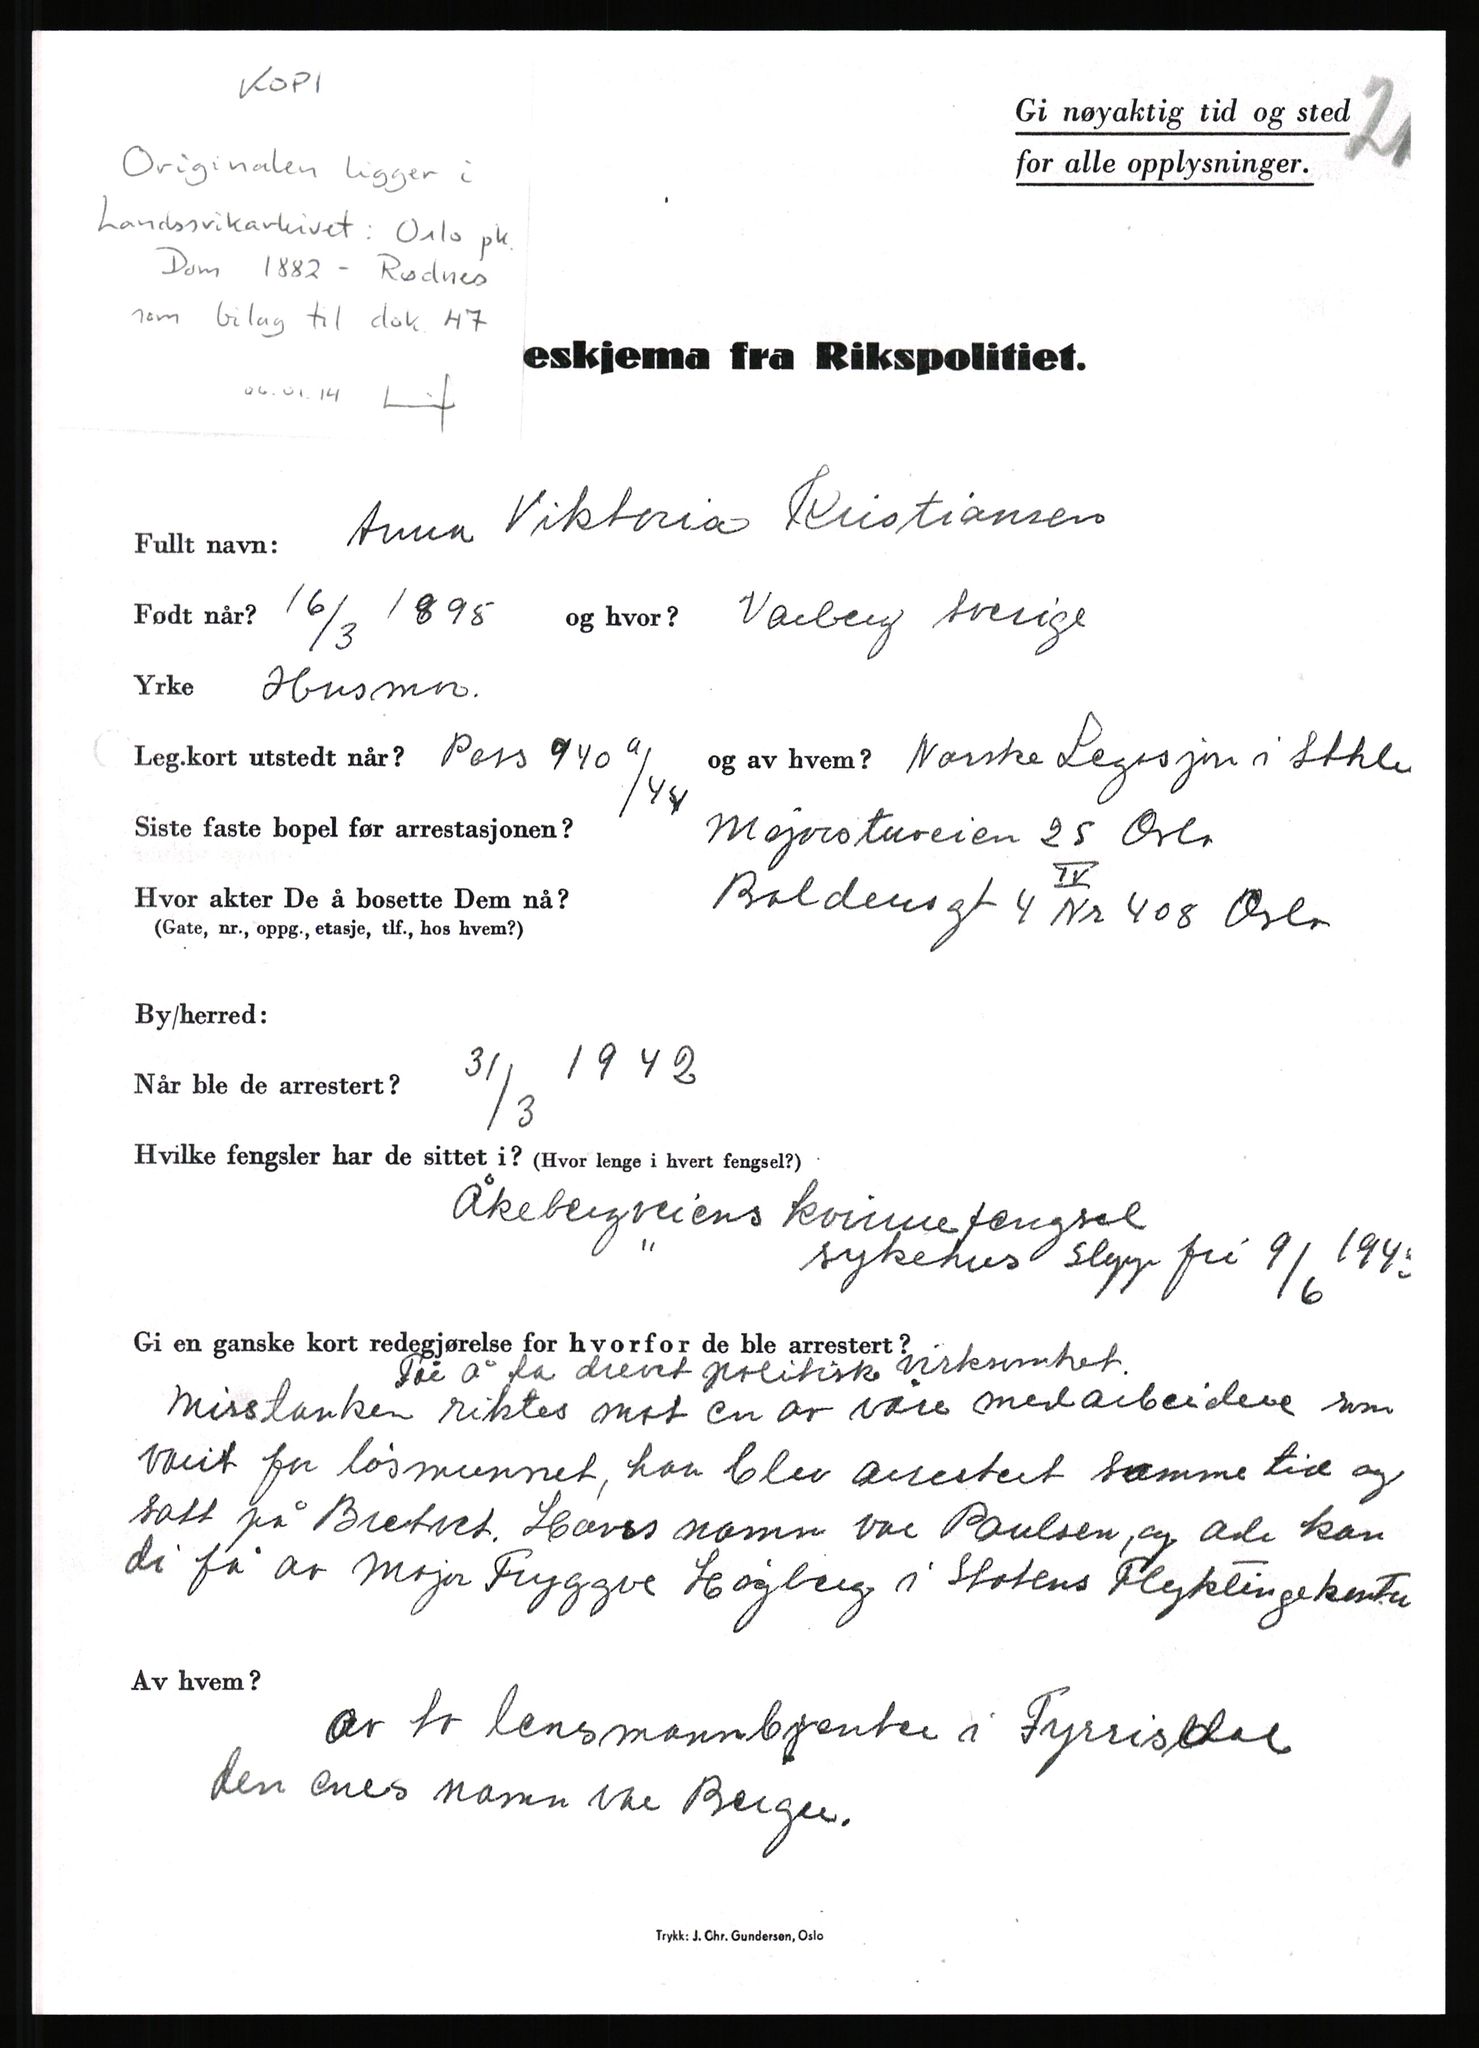 KOPI
Originalen ligger i
Landssvikarkivet: Oslo pk.
Dom 1882 - Rødnes
som bilag til dok 47
06.01.14
Gi nøyaktig tid og sted
for alle opplysninger.
eskjema fra Rikspolitiet.
Fullt navn: Anna Viktoria Kristiansen
Født når? 16/3 1895 og hvor? Varberg Sverige
Yrke Husmor.
Leg.kort utstedt når? Pass 940 a/44 og av hvem? Norske Legasjon i Sthlm
Siste faste bopel før arrestasjonen? Majorstuveien 25 Oslo
Hvor akter De å bosette Dem nå? Boldensgt 4 IV Nr 408 Oslo
(Gate, nr., oppg., etasje, tlf., hos hvem?)
By/herred:
Når ble de arrestert? 31/3 1942
Hvilke fengsler har de sittet i? (Hvor lenge i hvert fengsel?)
Åkebergveiens kvinnefengsel
" sykehus Slapp fri 9/6 194
Gi en ganske kort redegjørelse for hvorfor de ble arrestert?
För å ha drevet politisk virksomhet.
Misstanken riktes mot en av våre medarbeidere som
varit för lösmunnet, han blev arrestert samme tid og
satt på Bretvet. Hans namn var Paulsen, og adr kan
di få av Major Tryggve Högberg i Statens Flyktingekontor
Av hvem?
av to lensmannbetjenter i Fyrrisdal
den enes namn var Berger.
Trykk: J. Chr. Gundersen, Oslo